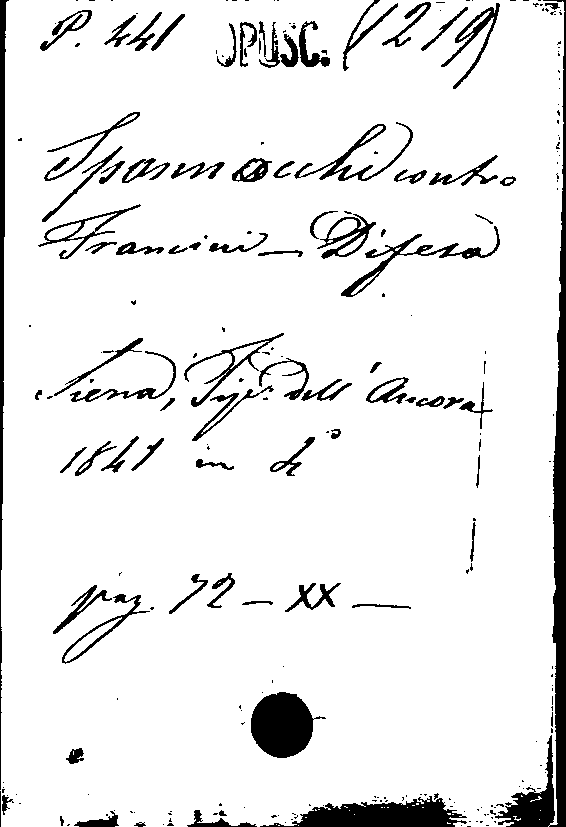 P. 441 OPUSC. (1219)
Spannocchi contro
Francini – Difesa
Siena, Tip. dell' Ancora
1841 in 4°
pag. 72 – XX –